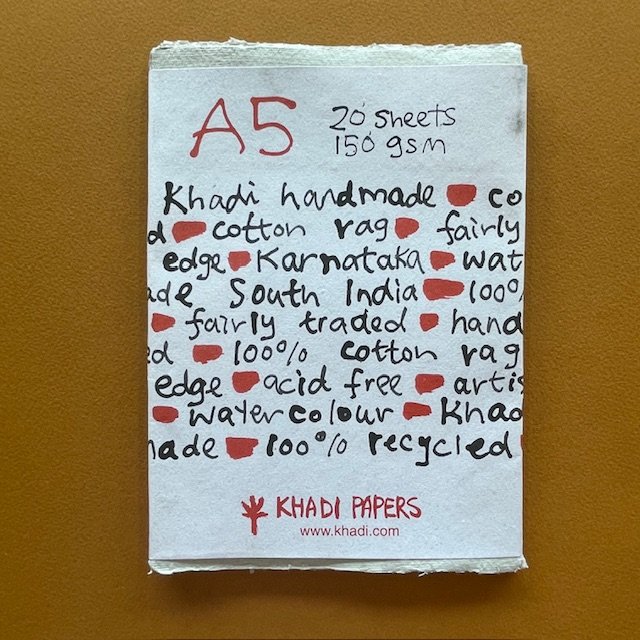 A5
20 sheets
150 gsm
Khadi handmade co
d cotton rag fairly
edge Karnataka wat
ade South India 100%
fairly traded hand
ed 100% cotton rag
edge acid free artis
watercolour Khad
made 100% recycled
KHADI PAPERS
www.khadi.com